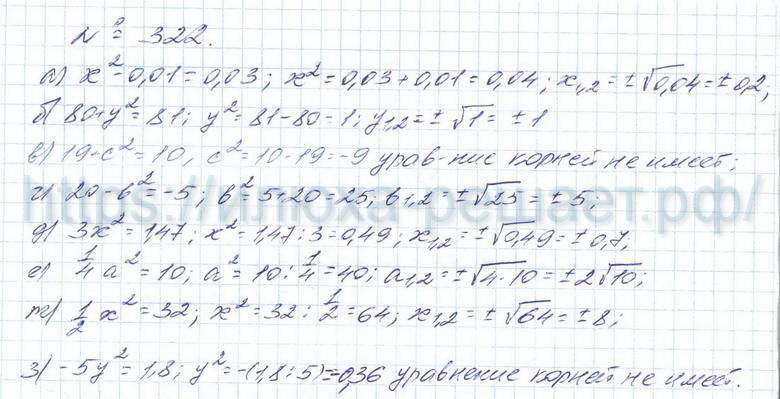 № 322.
а) x² - 0,01 = 0,03; x² = 0,03 + 0,01 = 0,04; x₁,₂ = ±√0,04 = ±0,2;
б) 80 + y² = 81; y² = 81 - 80 = 1; y₁,₂ = ±√1 = ±1
в) 19 + c² = 10, c² = 10 - 19 = -9 урав-ние корней не имеет;
г) 20 - b² = -5; b² = 5 + 20 = 25; b₁,₂ = ±√25 = ±5;
https://илюха-решает.рф/
д) 3x² = 1,47; x² = 1,47 : 3 = 0,49; x₁,₂ = ±√0,49 = ±0,7,
е) 1/4 a² = 10; a² = 10 : 1/4 = 40; a₁,₂ = ±√4·10 = ±2√10;
ж) 1/2 x² = 32; x² = 32 : 1/2 = 64; x₁,₂ = ±√64 = ±8;
з) -5y² = 1,8; y² = -(1,8 : 5) = -0,36 уравнение корней не имеет.